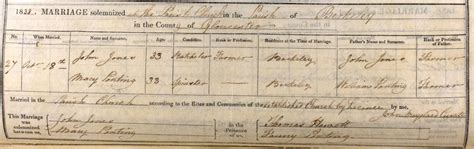 MARRIAGE solemnized in the Parish Church in the Parish of Berkeley
in the County of Gloucester
When Married. Name and Surname. Age. Condition. Rank or Profession. Residence at the Time of Marriage. Father's Name and Surname. Rank or Profession of Father.
27 18th John Jones 33 Batchelor Farmer Berkeley John Jones Farmer
Mary Ponting 33 Spinster Berkeley William Ponting Farmer
Married in the Parish Church according to the Rites and Ceremonies of the Established Church by Licence by me,
This Marriage was solemnized between us, John Jones Mary Ponting in the Presence of us, Thomas Hewett Fanny Ponting
John Curate